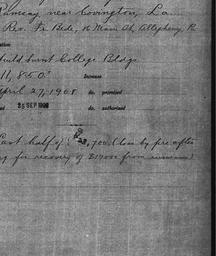 Ramsay near Covington, La.
Rev. Fr. Bede, 16 Main St, Allegheny, P
build burnt College Bldgs
11,850.00 Increase
April 27, 1908 do. promised
25 SEP 1908 do. authorized
Last half of
,700. (loss by fire after
for recovery of from insurance)